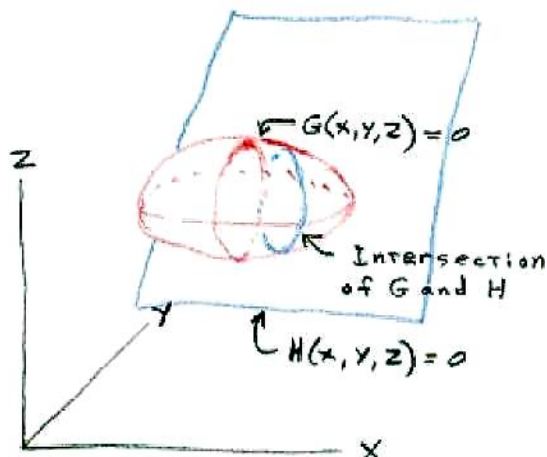 G(x,y,z)=0
Z
Intersection
of G and H
Y
H(x,y,z)=0
X